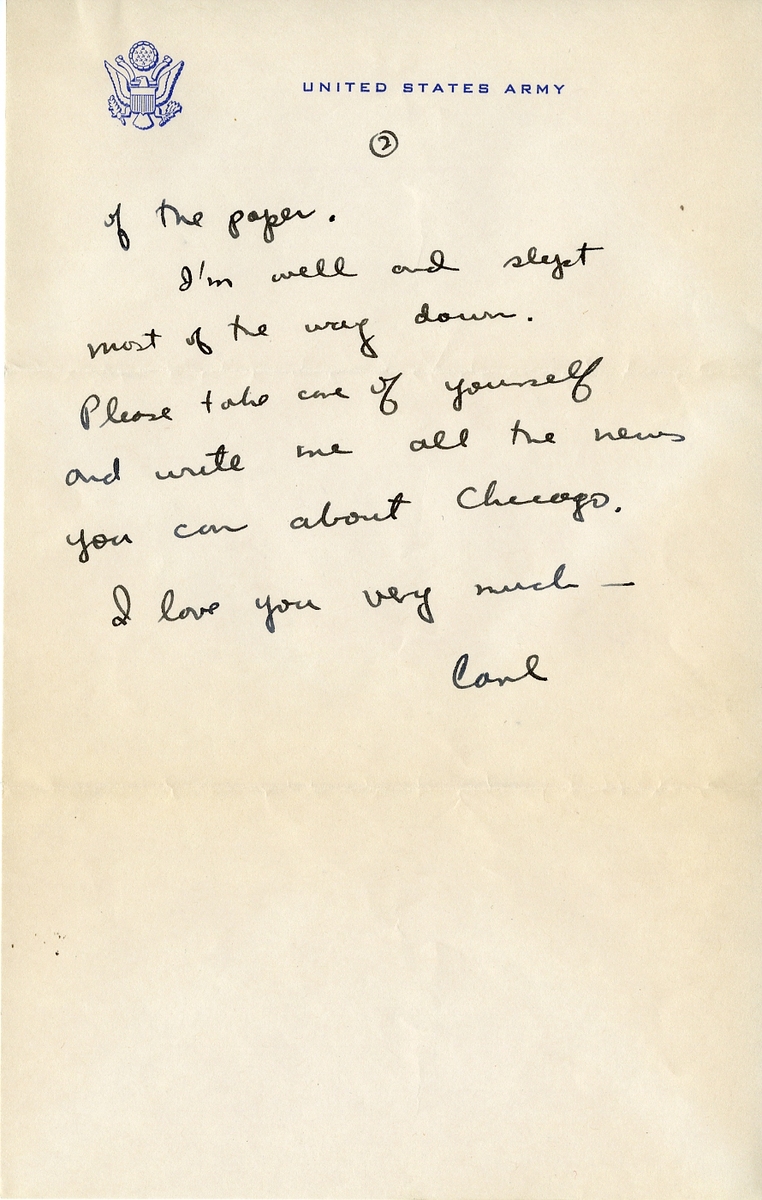 UNITED STATES ARMY
②
of the paper.
I'm well and slept
most of the way down.
Please take care of yourself
and write me all the news
you can about Chicago.
I love you very much —
Carl